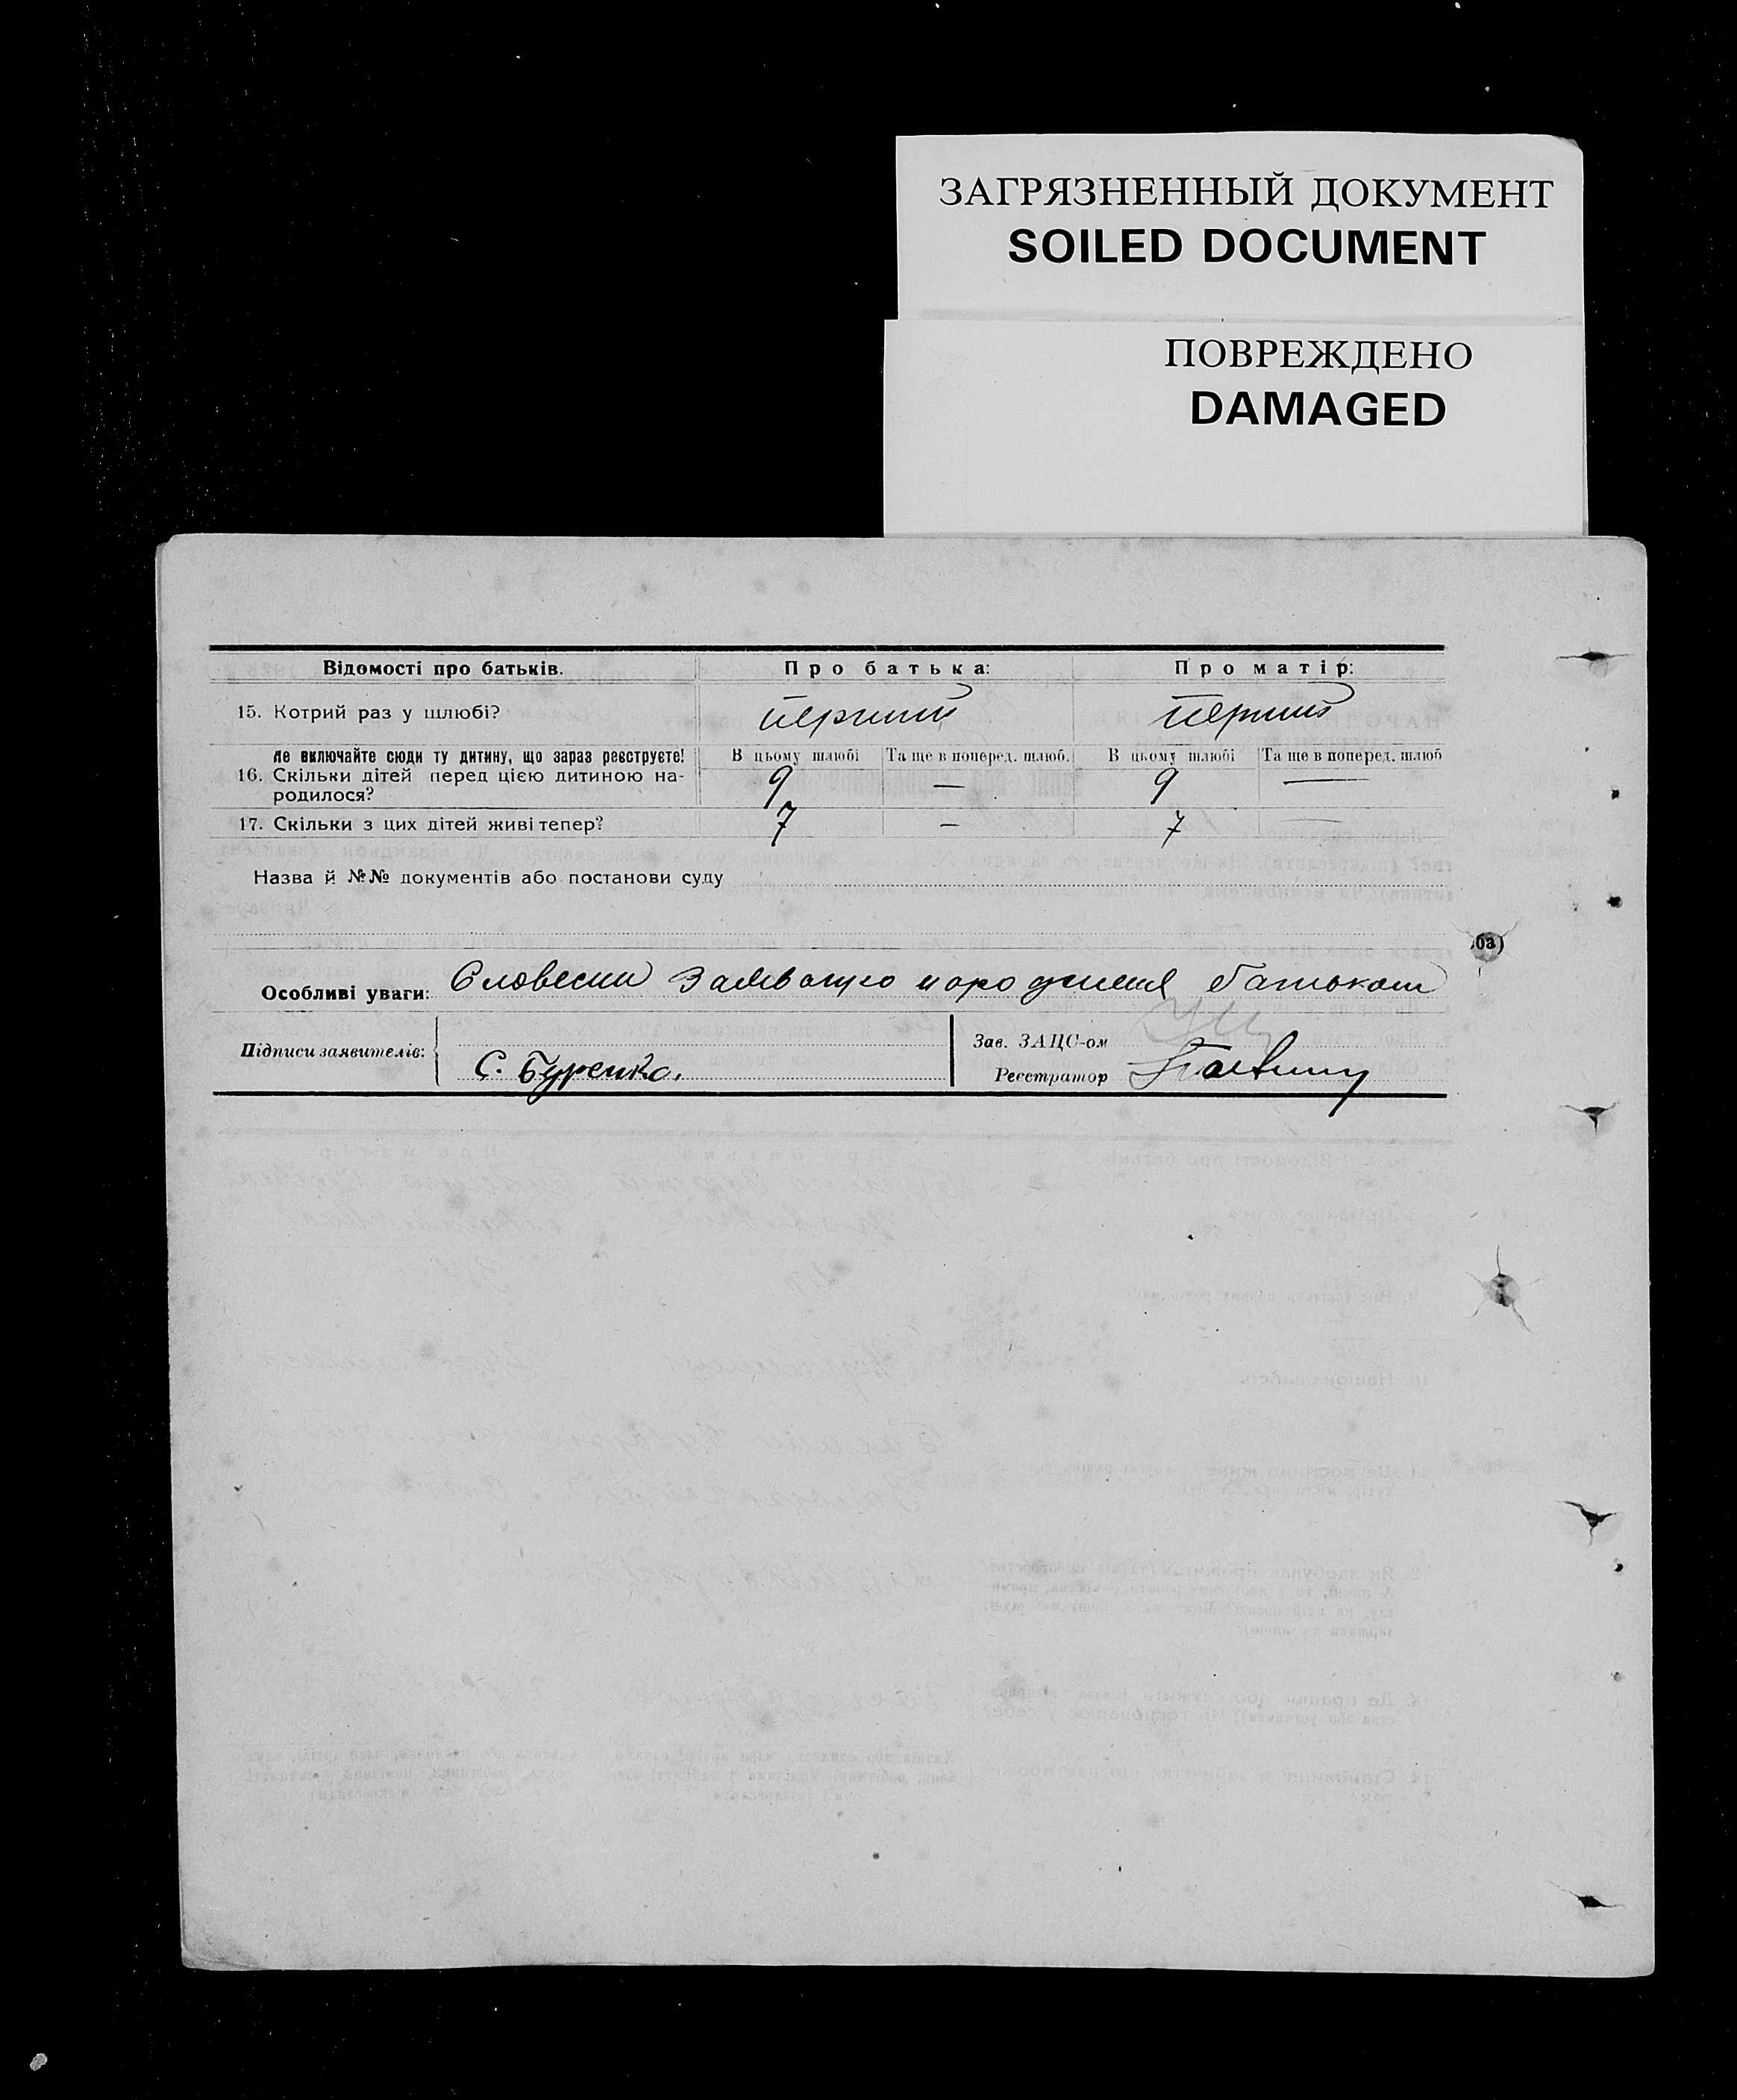 ЗАГРЯЗНЕННЫЙ ДОКУМЕНТ
SOILED DOCUMENT
ПОВРЕЖДЕНО
DAMAGED
Відомості про батьків. Про батька: Про матір:
15. Котрий раз у шлюбі? перший перший
Не включайте сюди ту дитину, що зараз реєструєте! В цьому шлюбі Та ще в поперед. шлюб. В цьому шлюбі Та ще в поперед. шлюб
16. Скільки дітей перед цією дитиною на- 9 — 9 —
родилося?
17. Скільки з цих дітей живі тепер? 7 — 7 —
Назва й №№ документів або постанови суду
ба)
Особливі уваги: Словесни народження батьком
Підписи заявителів: Зав. ЗАЦС-ом
С. Буренко. Реєстратор